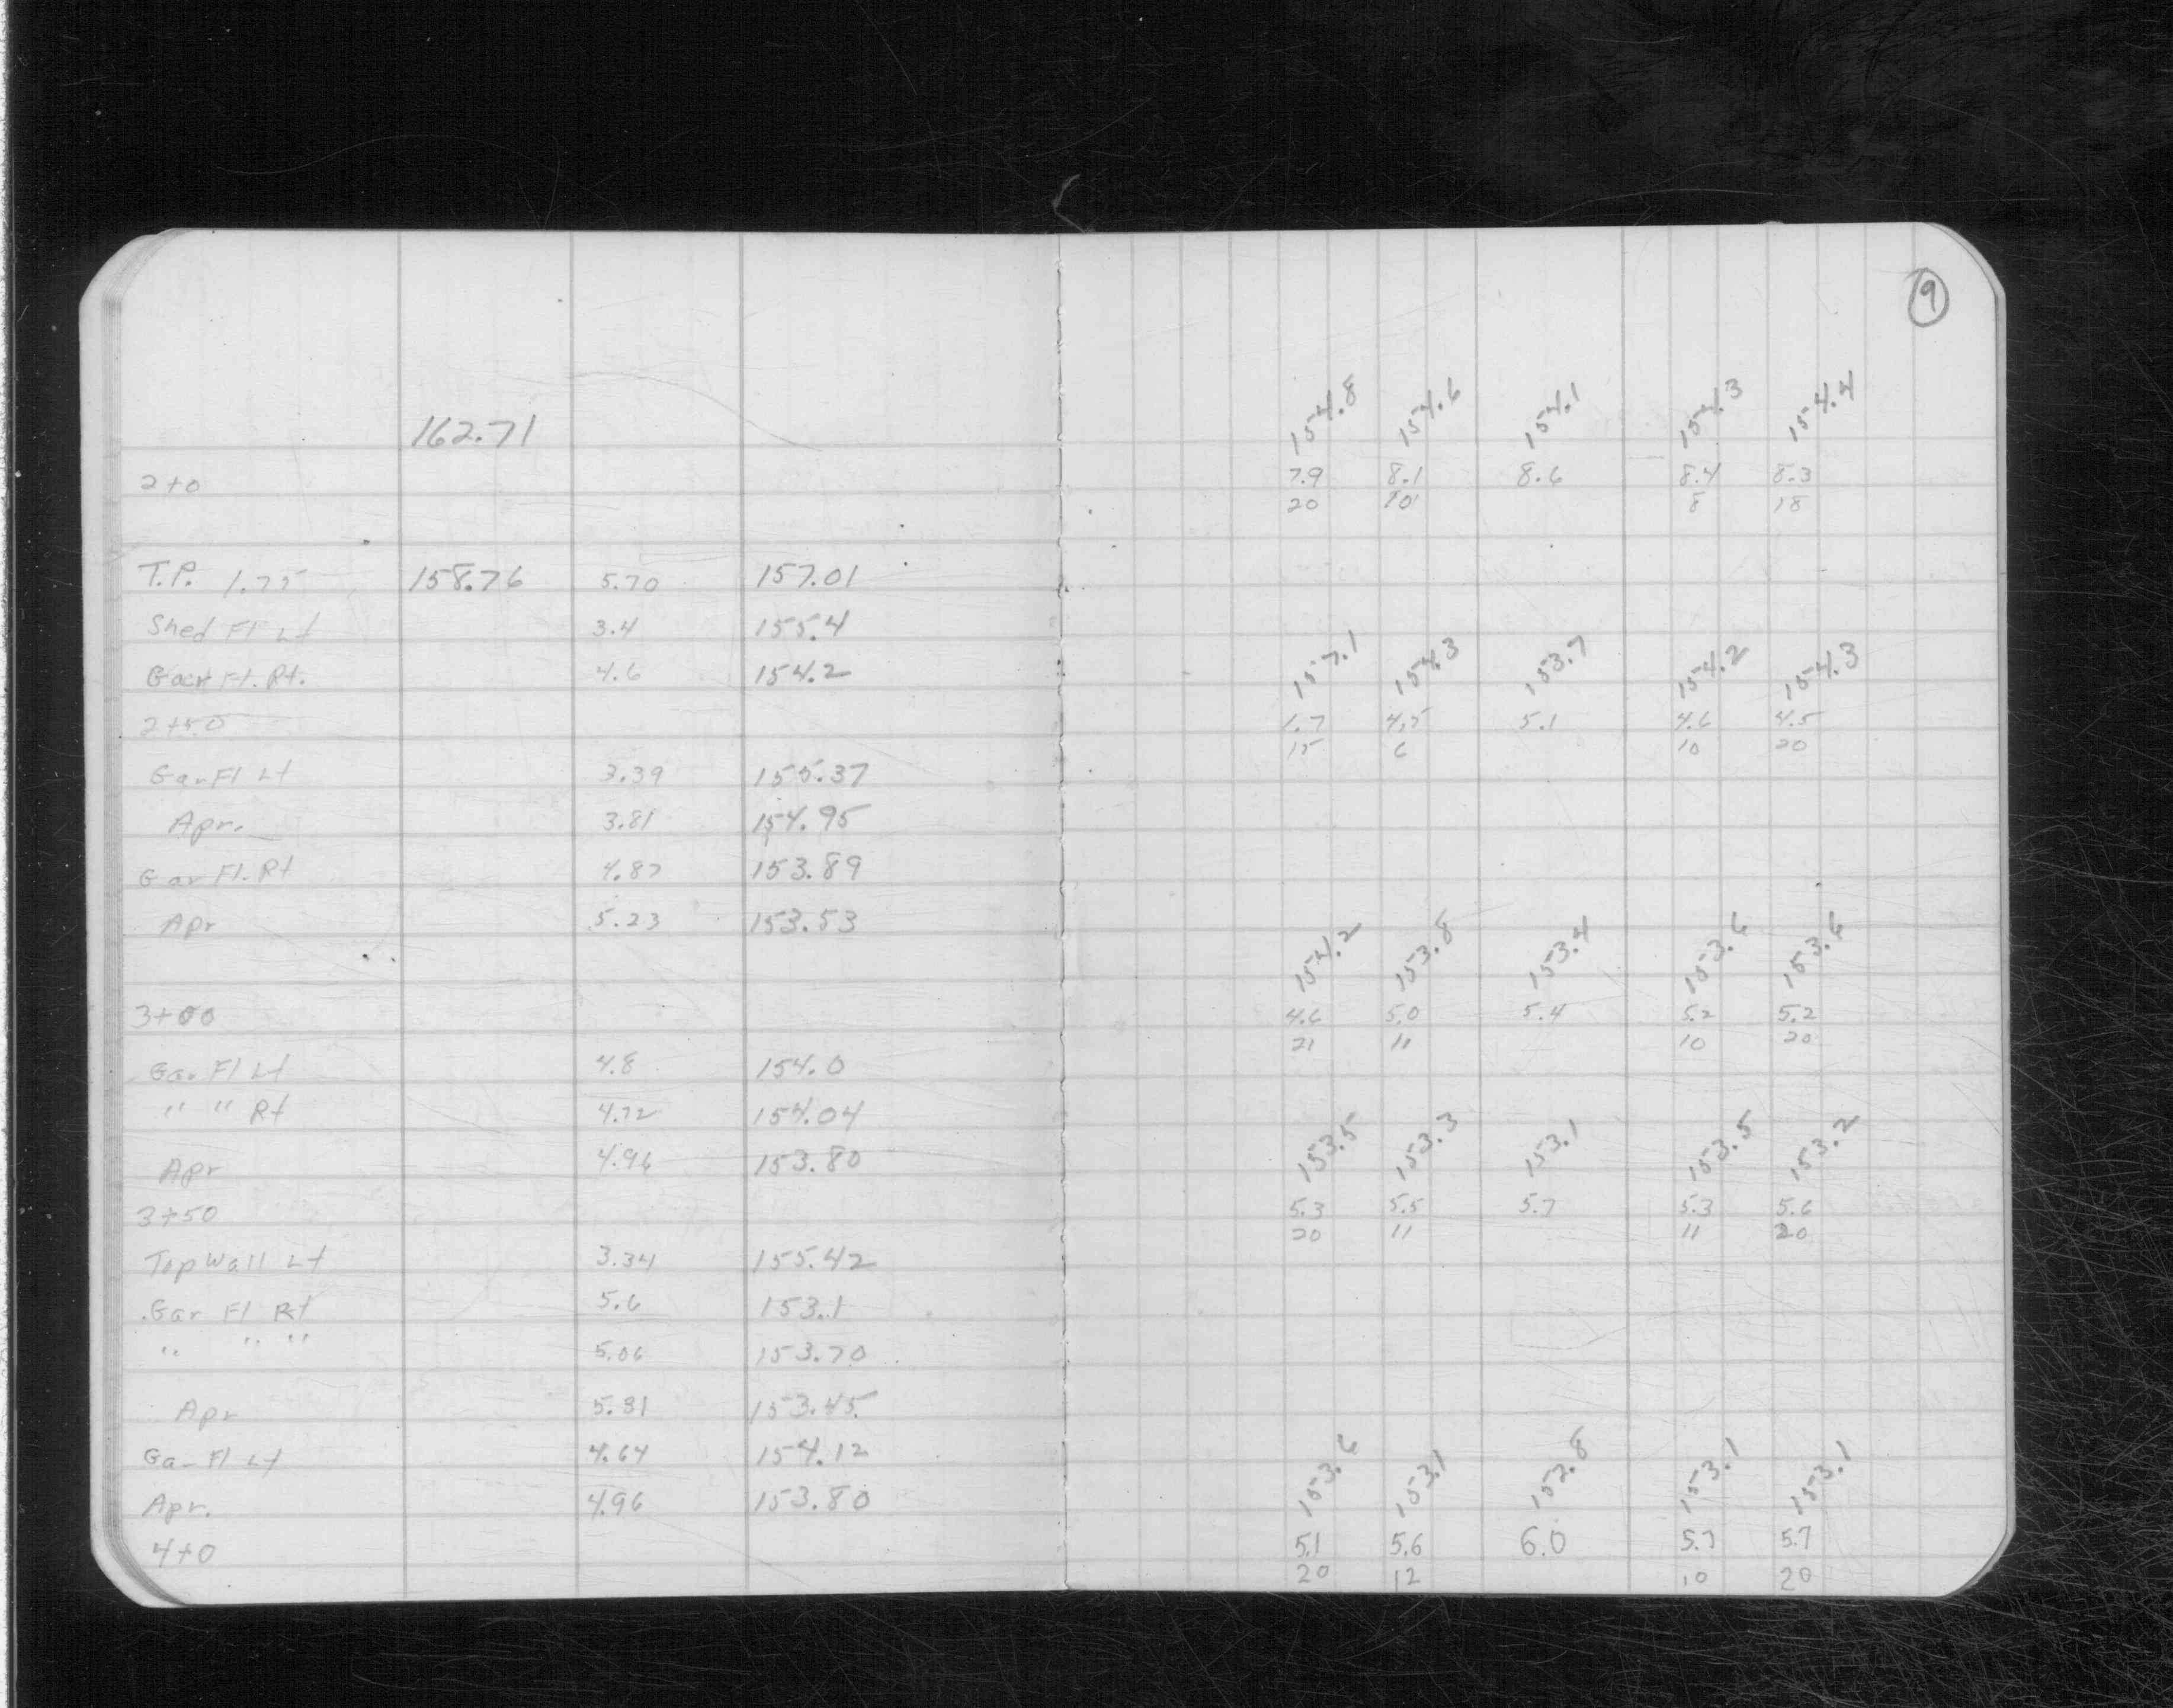 9
162.71
154.8 154.6 154.1 154.3 154.4
2+0 7.9 8.1 8.6 8.4 8.3
20 10 8 18
T.P. 1.75 158.76 5.70 157.01
Shed Fl Lt 3.4 155.4
Fl. Rt. 4.6 154.2 157.1 154.3 153.7 154.2 154.3
2+50 1.7 4.5 5.1 4.6 4.5
15 6 10 20
Gar Fl Lt 3.39 155.37
Apr. 3.81 154.95
Gar Fl. Rt 4.87 153.89
Apr 5.23 153.53
154.2 153.8 153.4 153.6 153.6
3+00 4.6 5.0 5.4 5.2 5.2
21 11 10 20
Gar Fl Lt 4.8 154.0
" " Rt 4.72 154.04
Apr 4.96 153.80 153.5 153.3 153.1 153.5 153.2
3+50 5.3 5.5 5.7 5.3 5.6
20 11 11 20
Top Wall Lt 3.34 155.42
Gar Fl Rt 5.6 153.1
" " " 5.06 153.70
Apr 5.31 153.45
Gar Fl Lt 4.64 154.12
Apr. 4.96 153.80 153.6 153.1 152.8 153.1 153.1
4+0 5.1 5.6 6.0 5.7 5.7
20 12 10 20